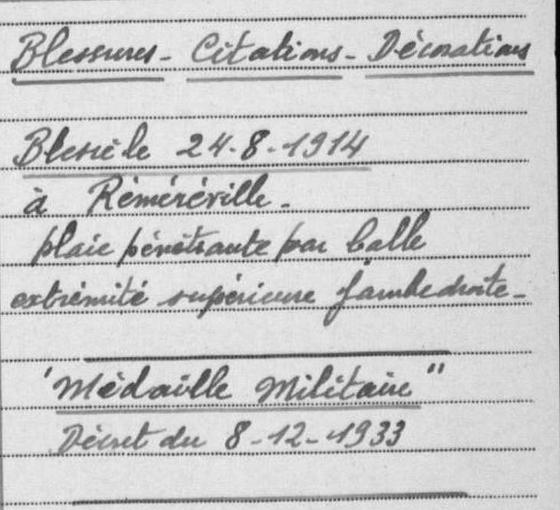 Blessures - Citations - Décorations
Blessé le 24-8-1914
à Réméréville -
plaie pénétrante par balle
extrémité supérieure jambe droite -
"Médaille Militaire"
Décret du 8-12-1933